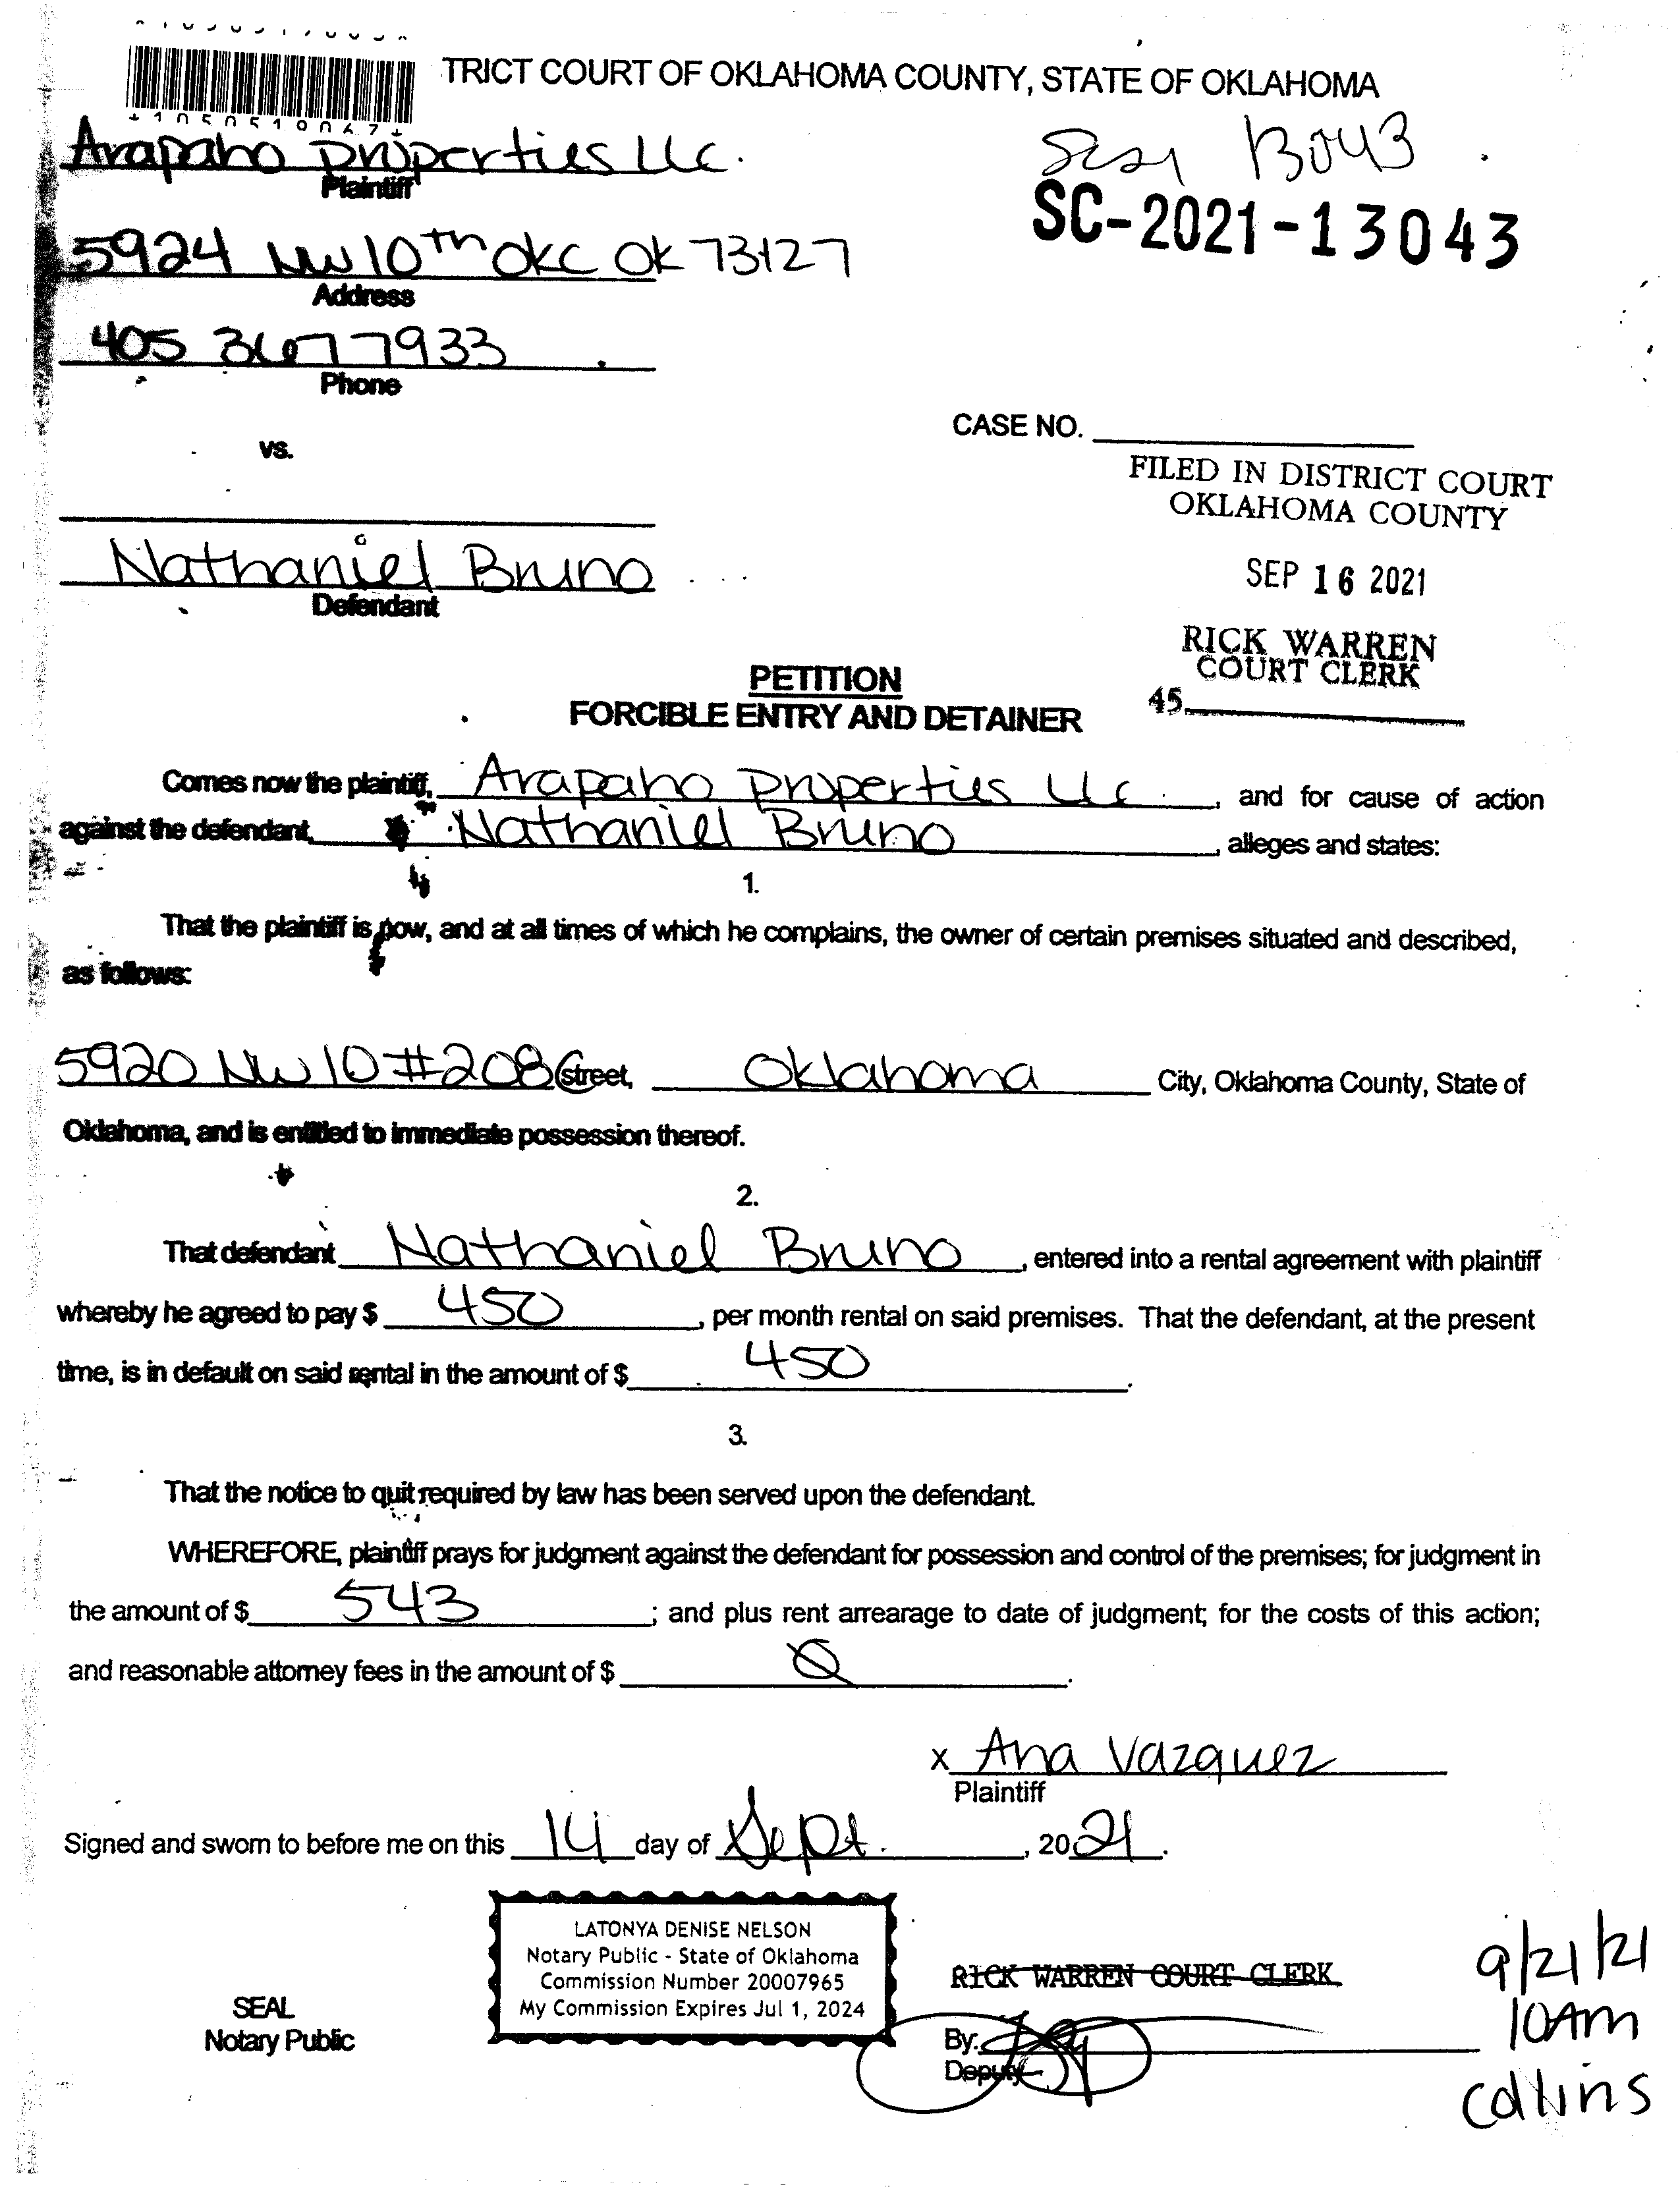 TRICT COURT OF OKLAHOMA COUNTY, STATE OF OKLAHOMA
Arapaho Properties LLC.
Plaintiff
13043
SC-2021-13043
5924 NW 10th OKC OK 73127
Address
405 367 7933
Phone
CASE NO.
vs.
FILED IN DISTRICT COURT
OKLAHOMA COUNTY
Nathaniel Bruno
Defendant
SEP 16 2021
RICK WARREN
COURT CLERK
45
PETITION
FORCIBLE ENTRY AND DETAINER
Comes now the plaintiff, Arapaho Properties LLC, and for cause of action
against the defendant, Nathaniel Bruno, alleges and states:
1.
That the plaintiff is now, and at all times of which he complains, the owner of certain premises situated and described,
as follows:
5920 NW 10 #208 street, Oklahoma City, Oklahoma County, State of
Oklahoma, and is entitled to immediate possession thereof.
2.
That defendant Nathaniel Bruno, entered into a rental agreement with plaintiff
whereby he agreed to pay $ 450, per month rental on said premises. That the defendant, at the present
time, is in default on said rental in the amount of $ 450.
3.
That the notice to quit required by law has been served upon the defendant.
WHEREFORE, plaintiff prays for judgment against the defendant for possession and control of the premises; for judgment in
the amount of $ 543; and plus rent arrearage to date of judgment; for the costs of this action;
and reasonable attorney fees in the amount of $ 0.
x Ana Vazquez
Plaintiff
Signed and sworn to before me on this 14 day of Sept., 2021.
LATONYA DENISE NELSON
Notary Public - State of Oklahoma
Commission Number 20007965
My Commission Expires Jul 1, 2024
SEAL
Notary Public
RICK WARREN COURT CLERK
By:
Deputy
9/21/21
10AM
Collins